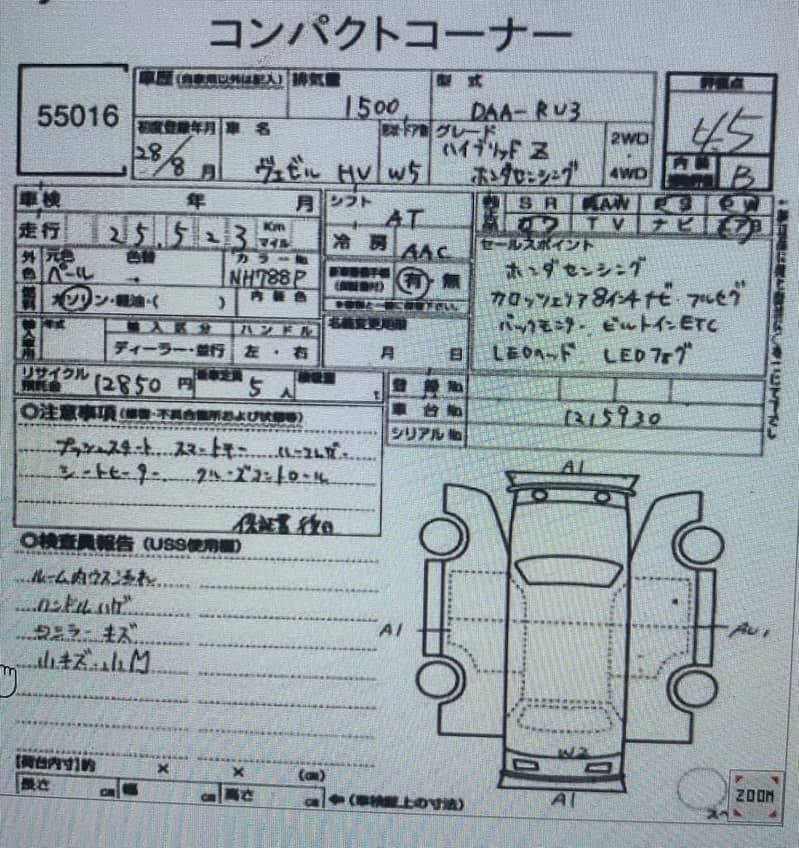 コンパクトコーナー
55016
車歴(自家用以外は記入)
排気量 1500
型式 DAA-RU3
評価点 4.5
初度登録年月 28/8月
車名 ヴェゼル HV
形状・ドア数 W5
グレード ハイブリッド Z
ホンダセンシング
2WD・4WD
内装 B
車検 年 月
シフト AT
SR AW PS PW
カワ TV ナビ
走行 25,523 Km マイル
冷房 AAC
セールスポイント
ホンダセンシング
カロッツェリア8インチナビ・フルセグ
バックモニター・ビルトインETC
LEDヘッド LEDフォグ
外色 元色 パール 色替 → カラーNo NH788P
有・無
燃料 ガソリン・軽油・( )
内装色
名義変更期限 月 日
輸入車用 年式 輸入区分 ディーラー・並行 ハンドル 左・右
リサイクル預託金 12850円
乗車定員 5人
積載量 t
登録No
車台No 1215930
シリアルNo
◎注意事項(修復・不具合箇所および状態等)
プッシュスタート スマートキー ハーフレザー
シートヒーター クルーズコントロール
保証書後日
◎検査員報告(USS使用欄)
ルーム内ウスヨゴレ
ハンドルハゲ
キズ
小キズ・小M
A1
A1
AU1
W2
A1
【荷台内寸】約 × × (㎝)
長さ ㎝ 幅 ㎝ 高さ ㎝ ⇐(車検証上の寸法)
ZOOM